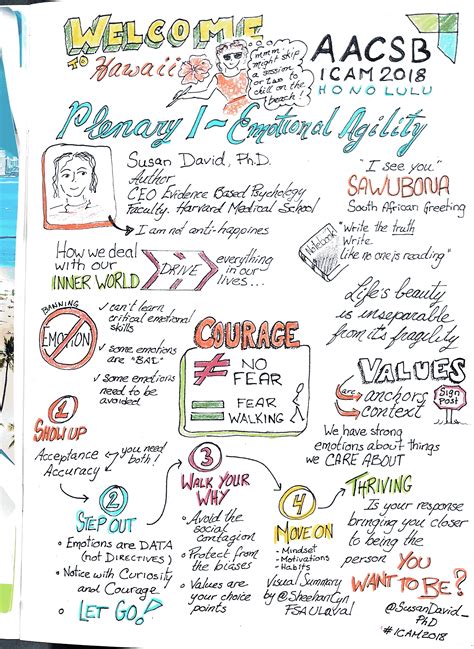 WELCOME
TO Hawaii
mmm
might skip
a session
or two to
chill on the
beach!
AACSB
ICAM 2018
HONOLULU
Plenary 1 ~ Emotional Agility
Susan David, PhD.
Author
CEO Evidence Based Psychology
Faculty. Harvard Medical School
I am not anti-happines
"I see you"
SAWUBONA
South African Greeting
Notebook
"Write the truth
Write
like no one is reading"
How we deal
with our
INNER WORLD
DRIVE
everything
in our
lives...
Life's beauty
is inseparable
from its fragility
BANNING
EMOTION
✓ can't learn
critical emotional
skills
✓ some emotions
are "BAD"
✓ some emotions
need to be
avoided
COURAGE
≠ NO
FEAR
= FEAR
WALKING
VALUES
are anchors
context
Sign
Post
We have strong
emotions about things
we CARE ABOUT
1
SHOW UP
Acceptance
Accuracy
you need
both!
2
STEP OUT
• Emotions are DATA
(not DIRECTIVES)
• Notice with Curiosity
and Courage.
• LET GO!
3
WALK YOUR
WHY
• Avoid the
social
contagion
• Protect from
the biases
• Values are
your choice
points
4
MOVE ON
- Mindset
- Motivations
- Habits
Visual Summary
by @SheehanCyn
FSAULaval
THRIVING
Is your response
bringing you closer
to being the
person YOU
WANT TO BE?
@SusanDavid_
PhD
#ICAM2018